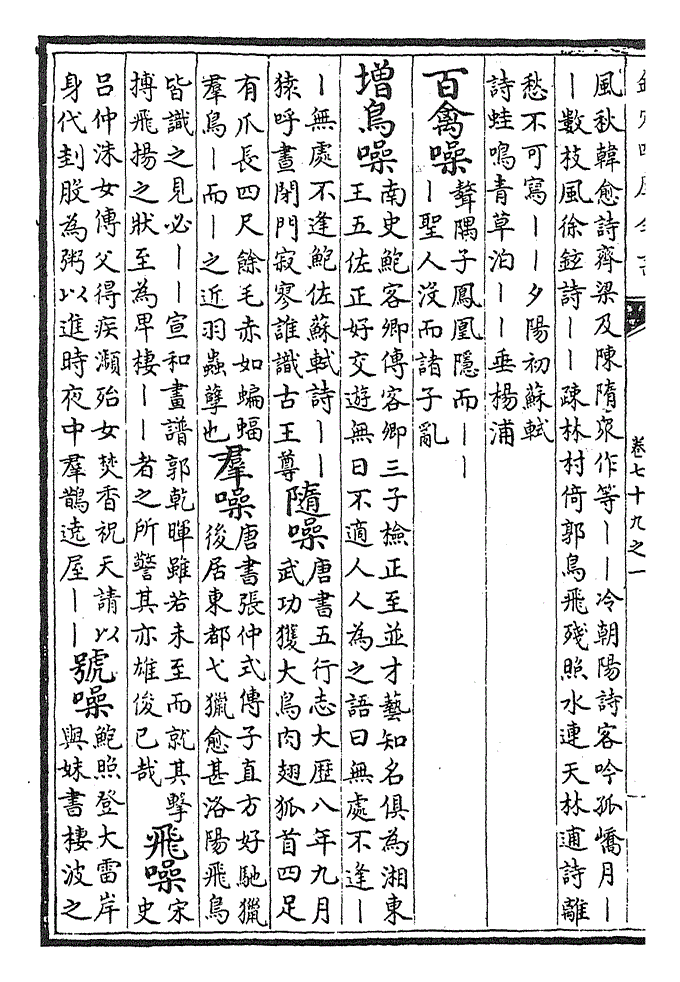 欽定四庫全書
卷七十九之一
風秋韓愈詩齊梁及陳隋衆作等丨丨冷朝陽詩客吟孤嶠月丨
丨數枝風徐鉉詩丨丨疎林村倚郭鳥飛殘照水連天林逋詩離
愁不可寫丨丨夕陽初蘇軾
詩蛙鳴青草泊丨丨垂楊浦
百禽噪
聱隅子鳳凰隱而丨丨
丨聖人沒而諸子亂
增鳥噪
南史鮑客卿傳客卿三子檢正至並才藝知名俱為湘東
王五佐正好交遊無日不適人人為之語曰無處不逢丨
丨無處不逢鮑佐蘇軾詩丨丨
猿呼晝閉門寂寥誰識古王尊
隨噪
唐書五行志大歷八年九月
武功獲大鳥肉翅狐首四足
有爪長四尺餘毛赤如蝙蝠
羣鳥丨而丨之近羽蟲孽也
羣噪
唐書張仲式傳子直方好馳獵
後居東都弋獵愈甚洛陽飛鳥
皆識之見必丨丨宣和畫譜郭乾暉雖若未至而就其擊
搏飛揚之狀至為卑棲丨丨者之所警其亦雄俊已哉
飛噪
宋
史
呂仲洙女傳父得疾瀕殆女焚香祝天請以
身代刲股為粥以進時夜中羣鵲遶屋丨丨
號噪
鮑照登大雷岸
與妹書棲波之